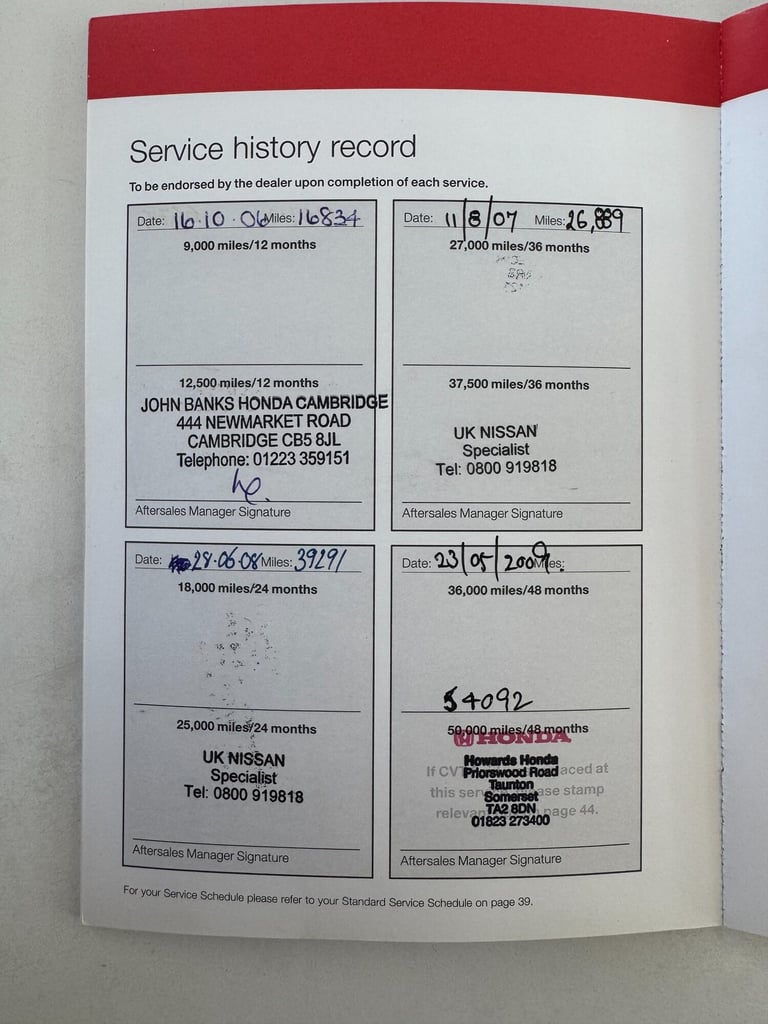 Service history record
To be endorsed by the dealer upon completion of each service.
Date: 16·10·06 Miles: 16834
9,000 miles/12 months
12,500 miles/12 months
JOHN BANKS HONDA CAMBRIDGE
444 NEWMARKET ROAD
CAMBRIDGE CB5 8JL
Telephone: 01223 359151
Aftersales Manager Signature
Date: 11/8/07 Miles: 26,889
27,000 miles/36 months
37,500 miles/36 months
UK NISSAN
Specialist
Tel: 0800 919818
Aftersales Manager Signature
Date: 28·06·08 Miles: 39291
18,000 miles/24 months
25,000 miles/24 months
UK NISSAN
Specialist
Tel: 0800 919818
Aftersales Manager Signature
Date: 23/05/2009 Miles:
36,000 miles/48 months
54092
50,000 miles/48 months
HONDA
Howards Honda
If CV Priorswood Road aced at
Taunton
this ser ase stamp
Somerset
TA2 8DN
releva page 44.
01823 273400
Aftersales Manager Signature
For your Service Schedule please refer to your Standard Service Schedule on page 39.